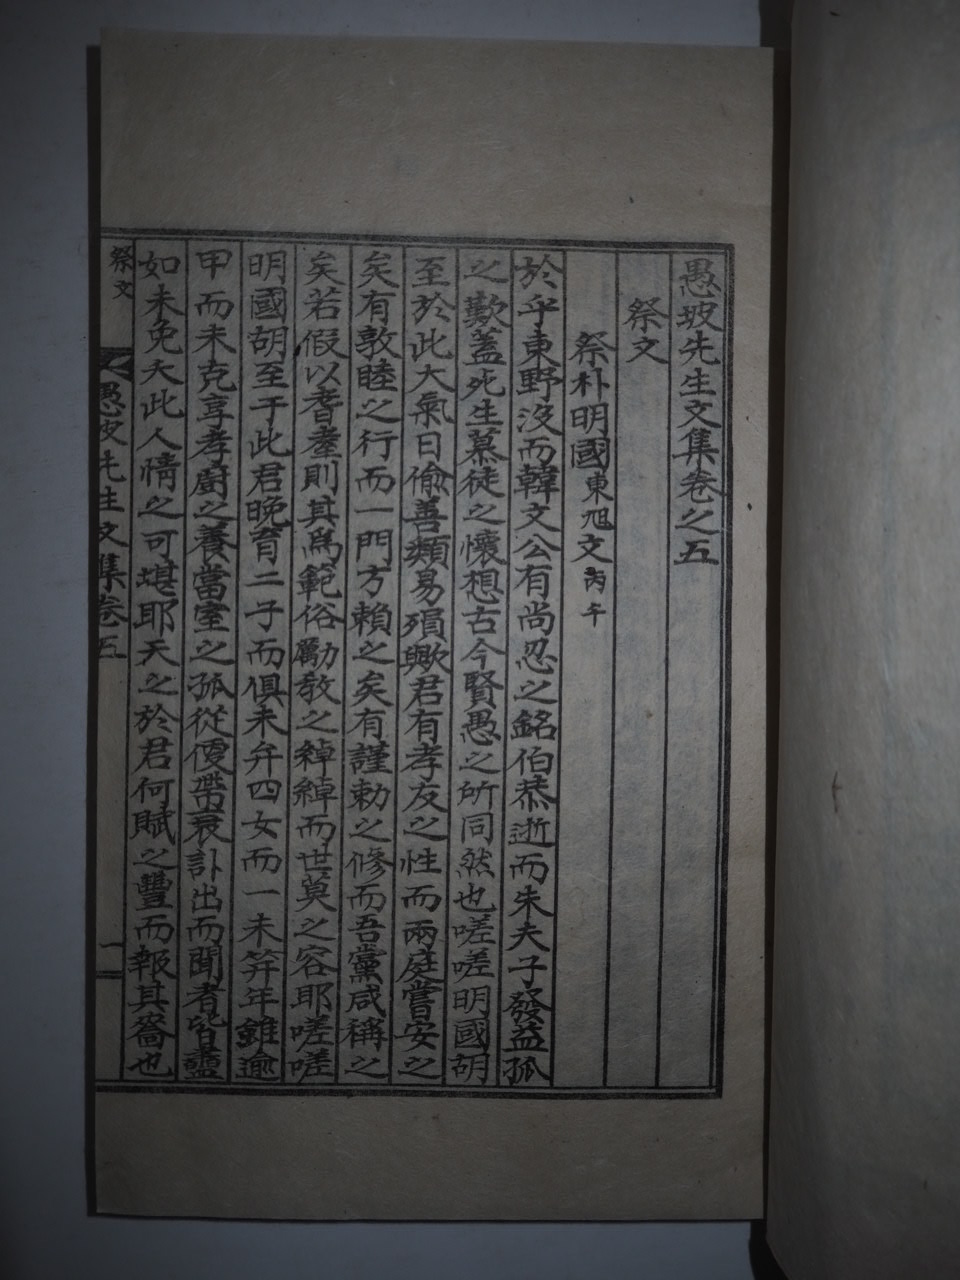 愚坡先生文集卷之五
祭文
祭朴明國東旭文丙午
於乎東野沒而韓文公有尚忍之銘伯恭逝而朱夫子發益孤
之歎蓋死生慕徒之懷想古今賢愚之所同然也嗟嗟明國胡
至於此大氣日偷善類易殞歟君有孝友之性而兩庭嘗安之
矣有敦睦之行而一門方賴之矣有謹勅之修而吾黨咸稱之
矣若假以耆耋則其爲範俗勵教之綽綽而世莫之容耶嗟嗟
明國胡至于此君晚育二子而俱未弁四女而一未笄年雖逾
甲而未克享孝廚之養當室之孤從傍帶衰訃出而聞者皆盡
如未免夭此人情之可堪耶天之於君何賦之豐而報其嗇也
祭文
愚坡先生文集卷五
一